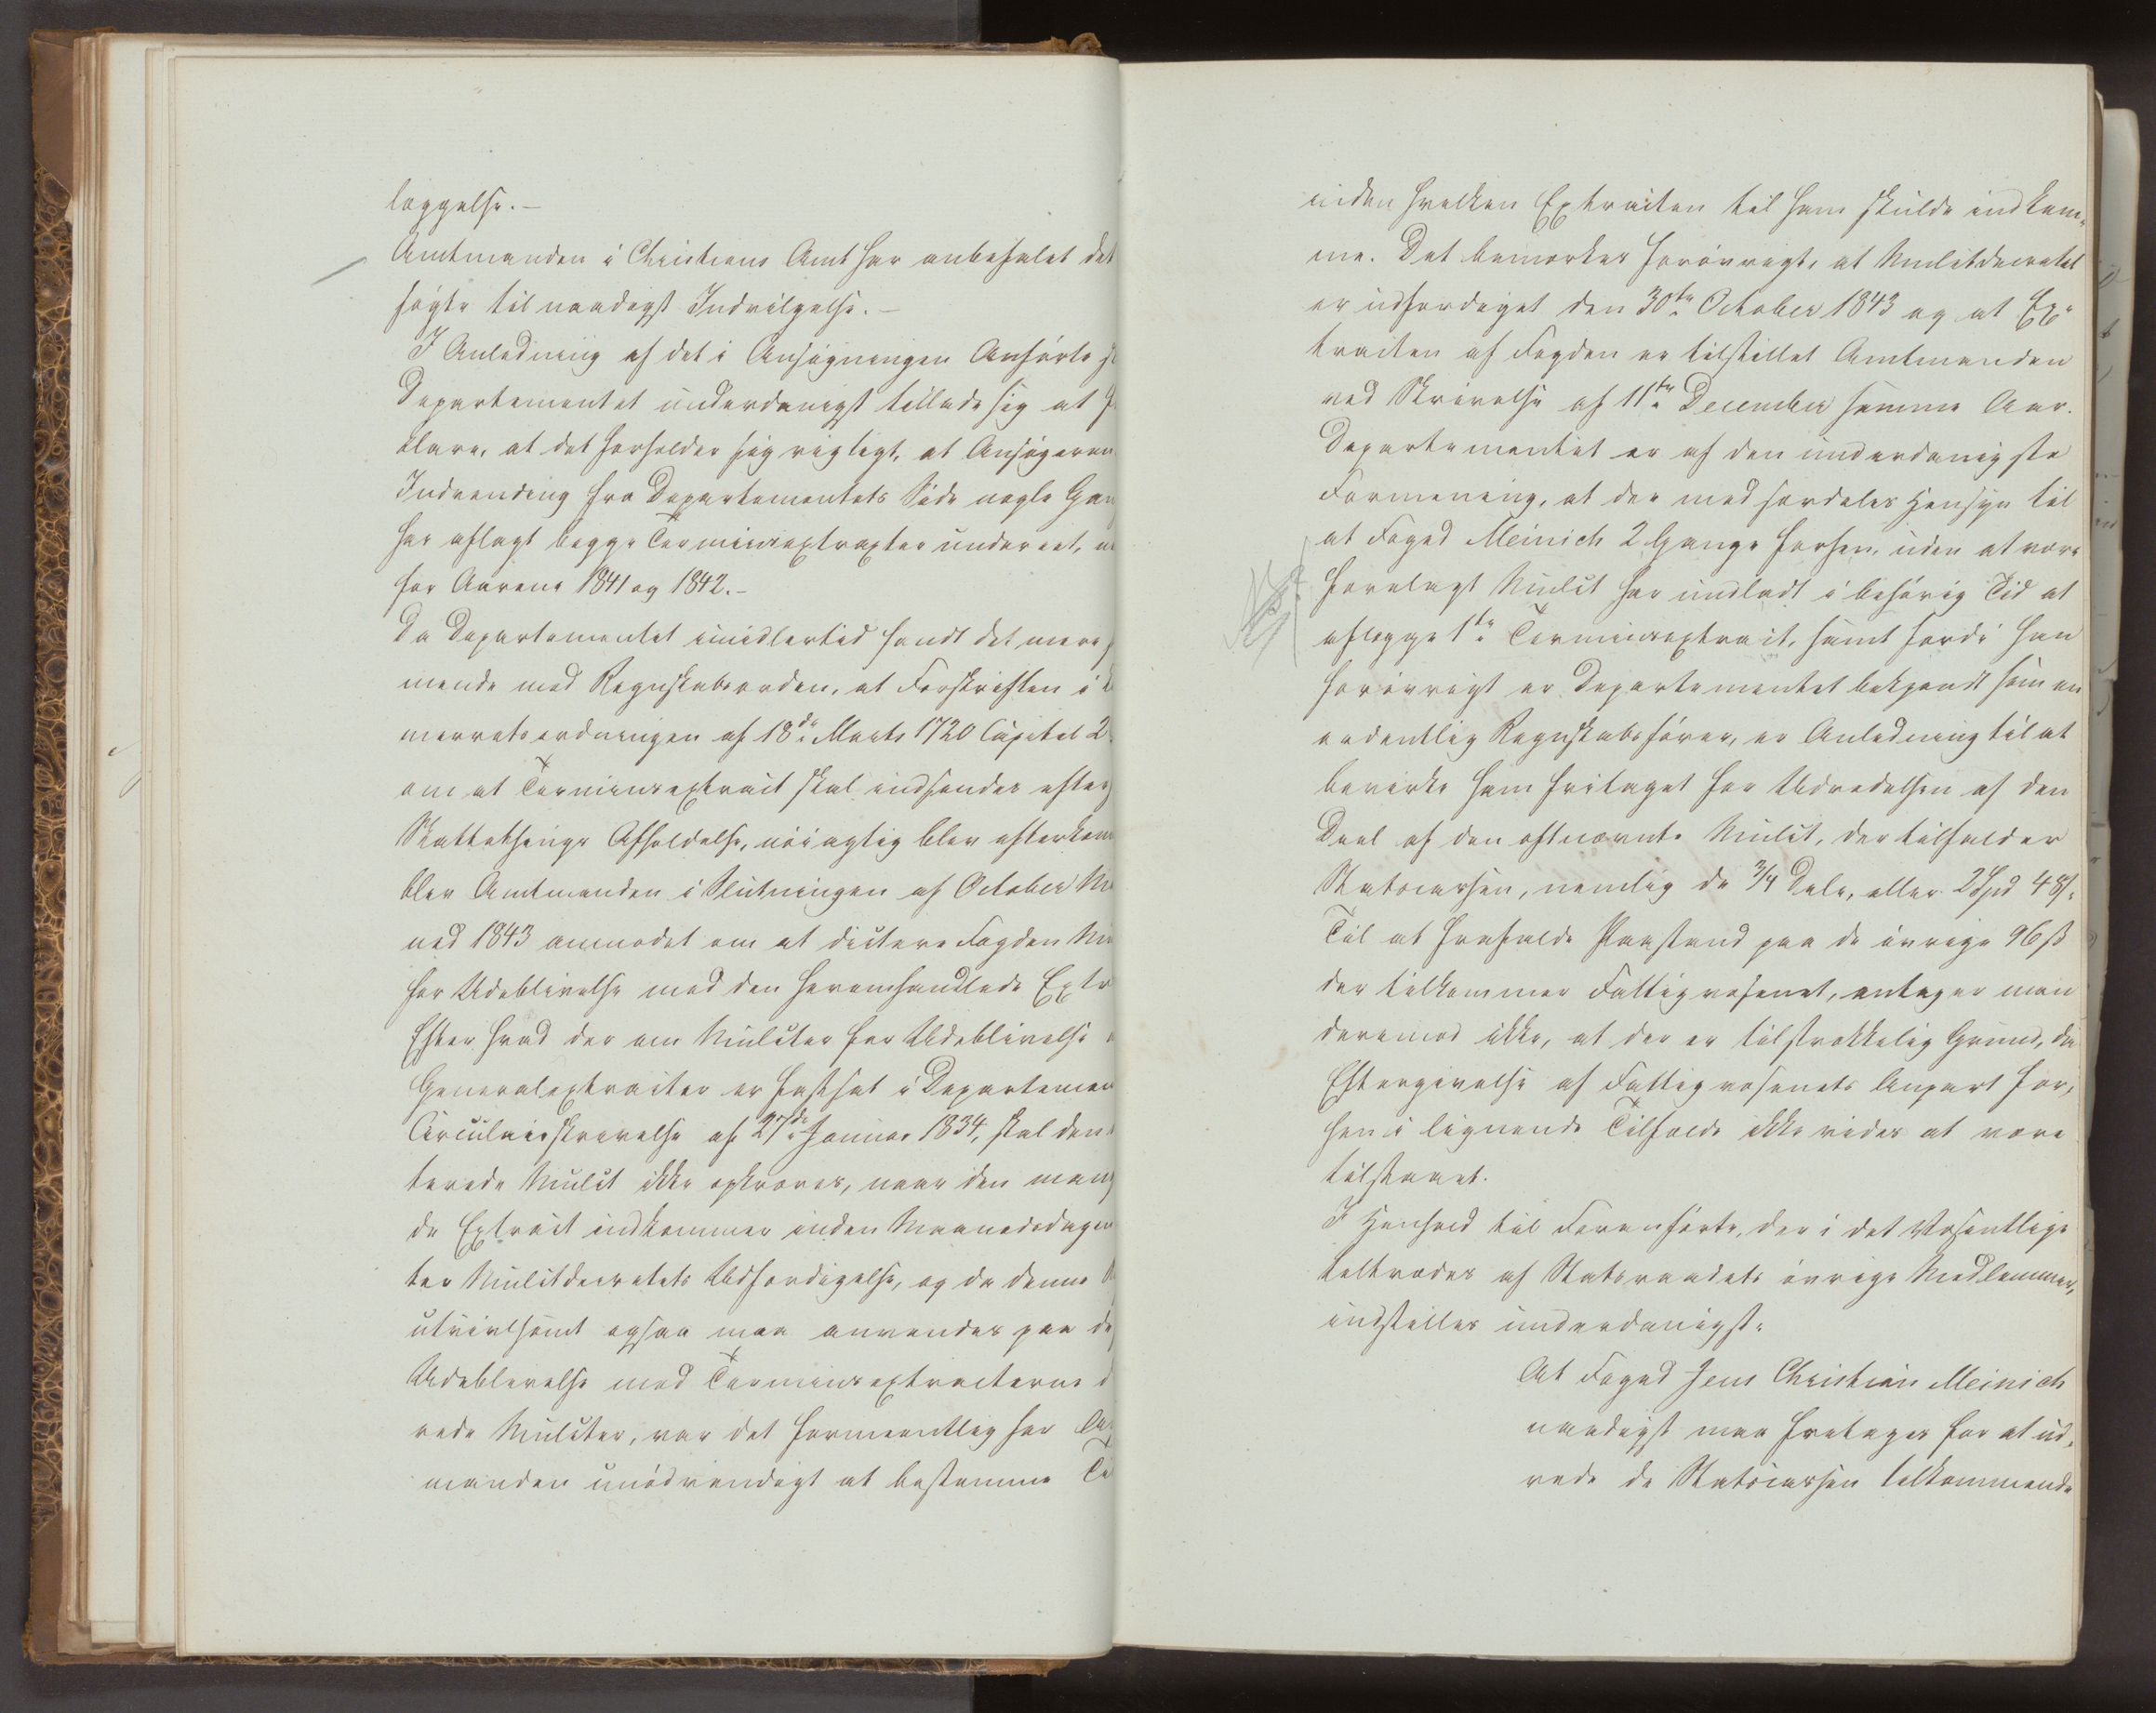 læggelse.—
Amtmanden i Christians Amt har anbefalet det
søgte til naadigst Indvilgelse.—
I Anledning af det i Ansøgningen Anførte
Departementet underdanigst tillade sig at
klare, at det forholder sig rigtigt, at Ansøgeren
Indvending fra Departementets Side nogle
har aflagt begge Terminsextrakter under eet,
for Aarene 1841 og 1842.—
Da Departementet imidlertid fandt det mere
mende med Regnskabsorden, at Forskriften i
merretsordningen af 18de Marts 1720 Capitel 2
om at Terminsextrait skal indsendes efter
Skattethings Afholdelse, nöiagtig blev
blev Amtmanden i Slutningen af October
ned 1843 anmodet om at dictere Fogden
for Udeblivelse med den heromhandlede
Efter hvad der om Mulcter for Udeblivelse
Generalextraiter er fastsat i
Circulairskrivelse af 27de Januar 1834, skal den
terede Mulct ikke opkræves, naar den
de Extrait indkommer inden
ter Mulctdecretets Udfærdigelse, og da denne
utvivlsomt ogsaa maa anvendes paa
Udeblivelse med Terminsextracterne
rede Mulcter, var det formeentlig for
manden unødvendigt at bestemme
inden hvilken Extraiten til ham skulde indkom-
me. Det bemærkes forøvrigt, at Mulctdecretet
er udfærdiget den 30te October 1843 og at Ex-
traiten af Fogden er tilstillet Amtmanden
ved Skrivelse af 11te December samme Aar.
Departementet er af den underdanigste
Formening, at der med særdeles Hensyn til
at Foged Meinich 2 Gange forhen, uden at være
forelagt Mulct har undladt i behørig Tid at
aflægge 1te Terminsextrait, samt fordi han
forøvrigt er Departementet bekjendt som en
ordentlig Regnskabsfører, er Anledning til at
bevirke ham fritaget for Udredelsen af den
Deel af den oftnævnte Mulct, der tilfalder
Statscassen, nemlig de 3/4 Dele, eller 2 Spd 48 ß.
Til at frafalde Paastand paa de øvrige 96 ß
der tilkommer Fattigvæsenet, antager man
derimod ikke, at der er tilstrækkelig Grund, da
Eftergivelse af Fattigvæsenets Anpart for-
hen i lignende Tilfælde ikke vides at være
tilstaaet.
I Henhold til Foranførte, der i det Væsentlige
tiltrædes af Statsraadets øvrige Medlemmer,
indstilles underdanigst:
At Foged Jens Christian Meinich
naadigst maa fritages for at ud-
rede de Statscassen tilkommende